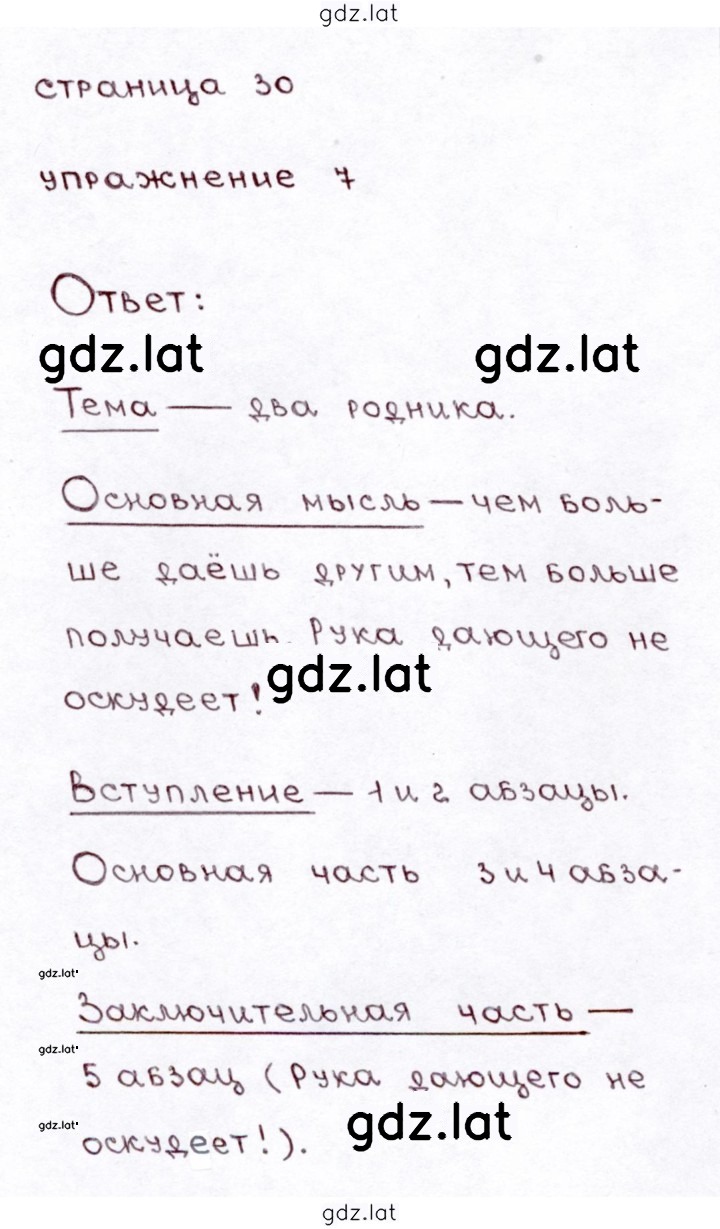 gdz.lat
страница 30
упражнение 7
Ответ:
gdz.lat gdz.lat
Тема — два родника.
Основная мысль — чем боль-
ше даёшь другим, тем больше
получаешь. Рука дающего не
gdz.lat
оскудеет!
Вступление — 1 и 2 абзацы.
Основная часть 3 и 4 абза-
цы.
gdz.lat
Заключительная часть —
gdz.lat
5 абзац (Рука дающего не
gdz.lat gdz.lat
оскудеет!).
gdz.lat